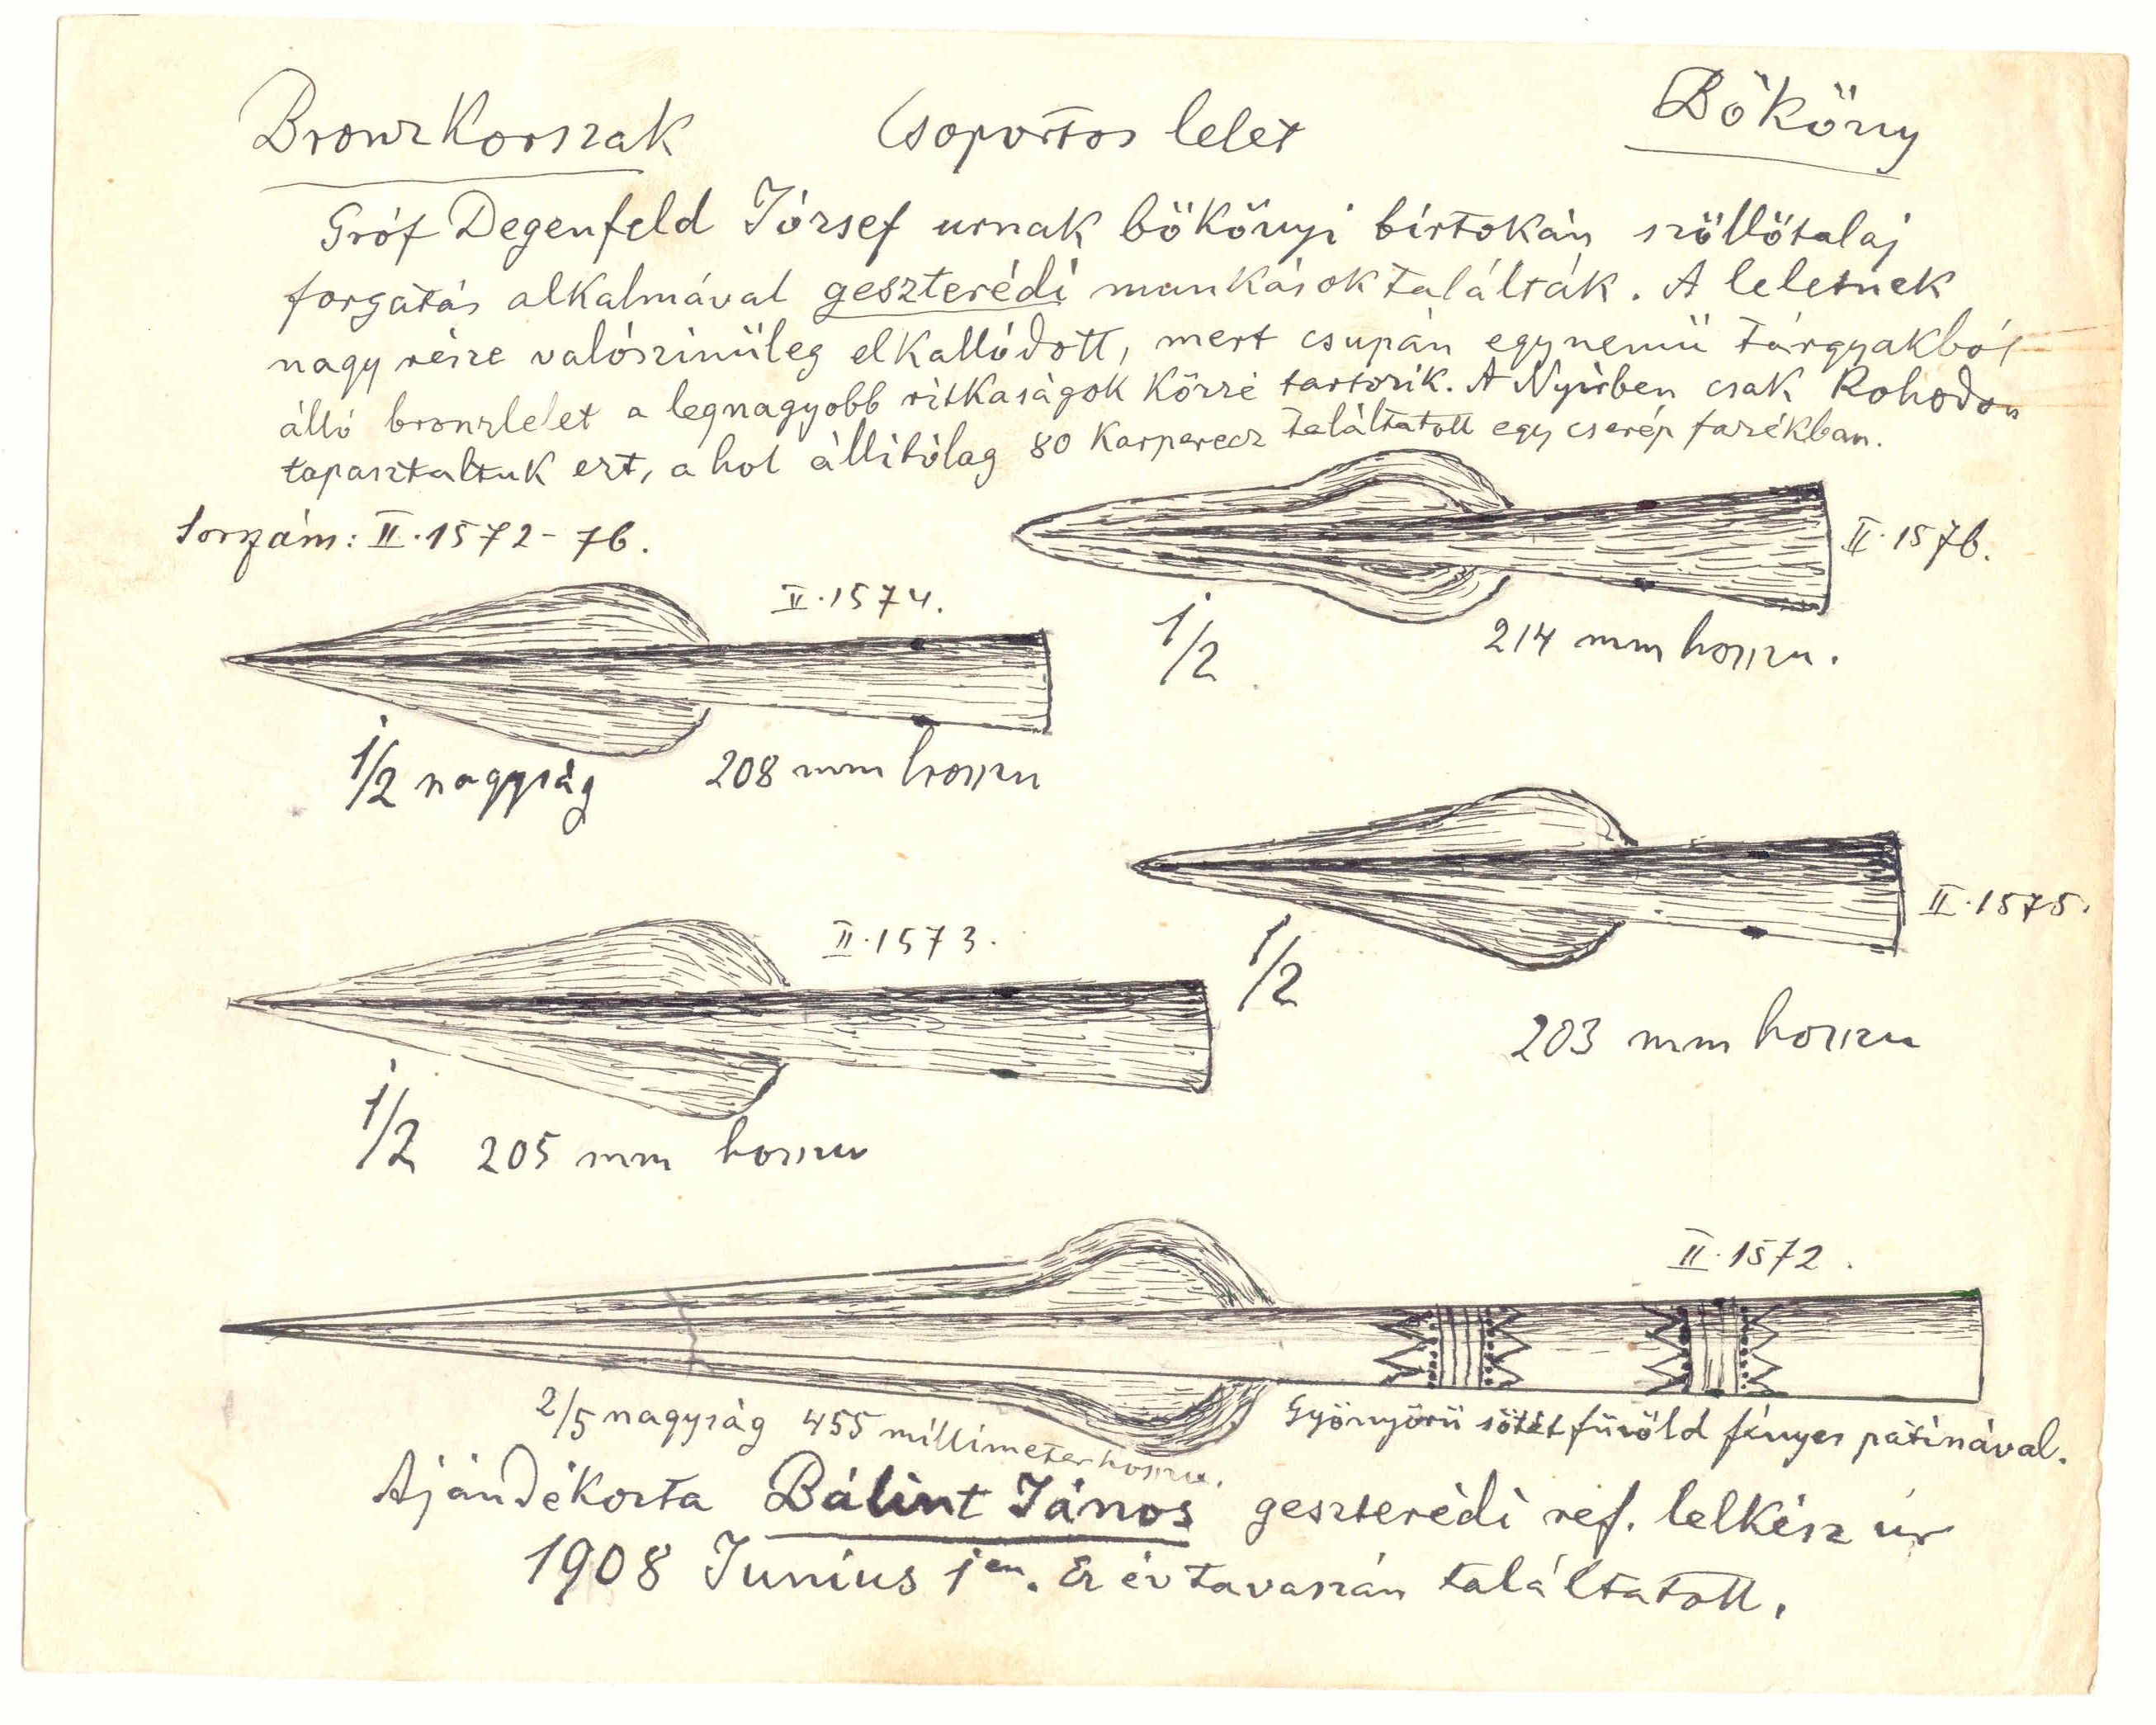 Bronzkorszak Csoportos lelet Bököny
Gróf Degenfeld József urnak bökönyi birtokán szöllőtalaj
forgatás alkalmával geszterédi munkások találták. A leletnek
nagy része valószinüleg elkallódott, mert csupán egynemü tárgyakból
álló bronzlelet a legnagyobb ritkaságok közzé tartozik. A Nyirben csak Rohodon
tapasztaltuk ezt, a hol állitólag 80 karperecz találtatott egy cserép fazékban.
Sorszám: II.1572-76.
II.1576.
1/2 214 mm hosszu.
II.1574.
1/2 nagyság 208 mm hosszu
II.1575.
1/2
203 mm hosszu
II.1573.
1/2 205 mm hosszu
II.1572.
2/5 nagyság 455 millimeter hosszu.
Gyönyörü sötét füzöld fényes patinával.
Ajándékozta Bálint János geszterédi ref. lelkész úr
1908 Junius 1en. Ez év tavaszán találtatott.